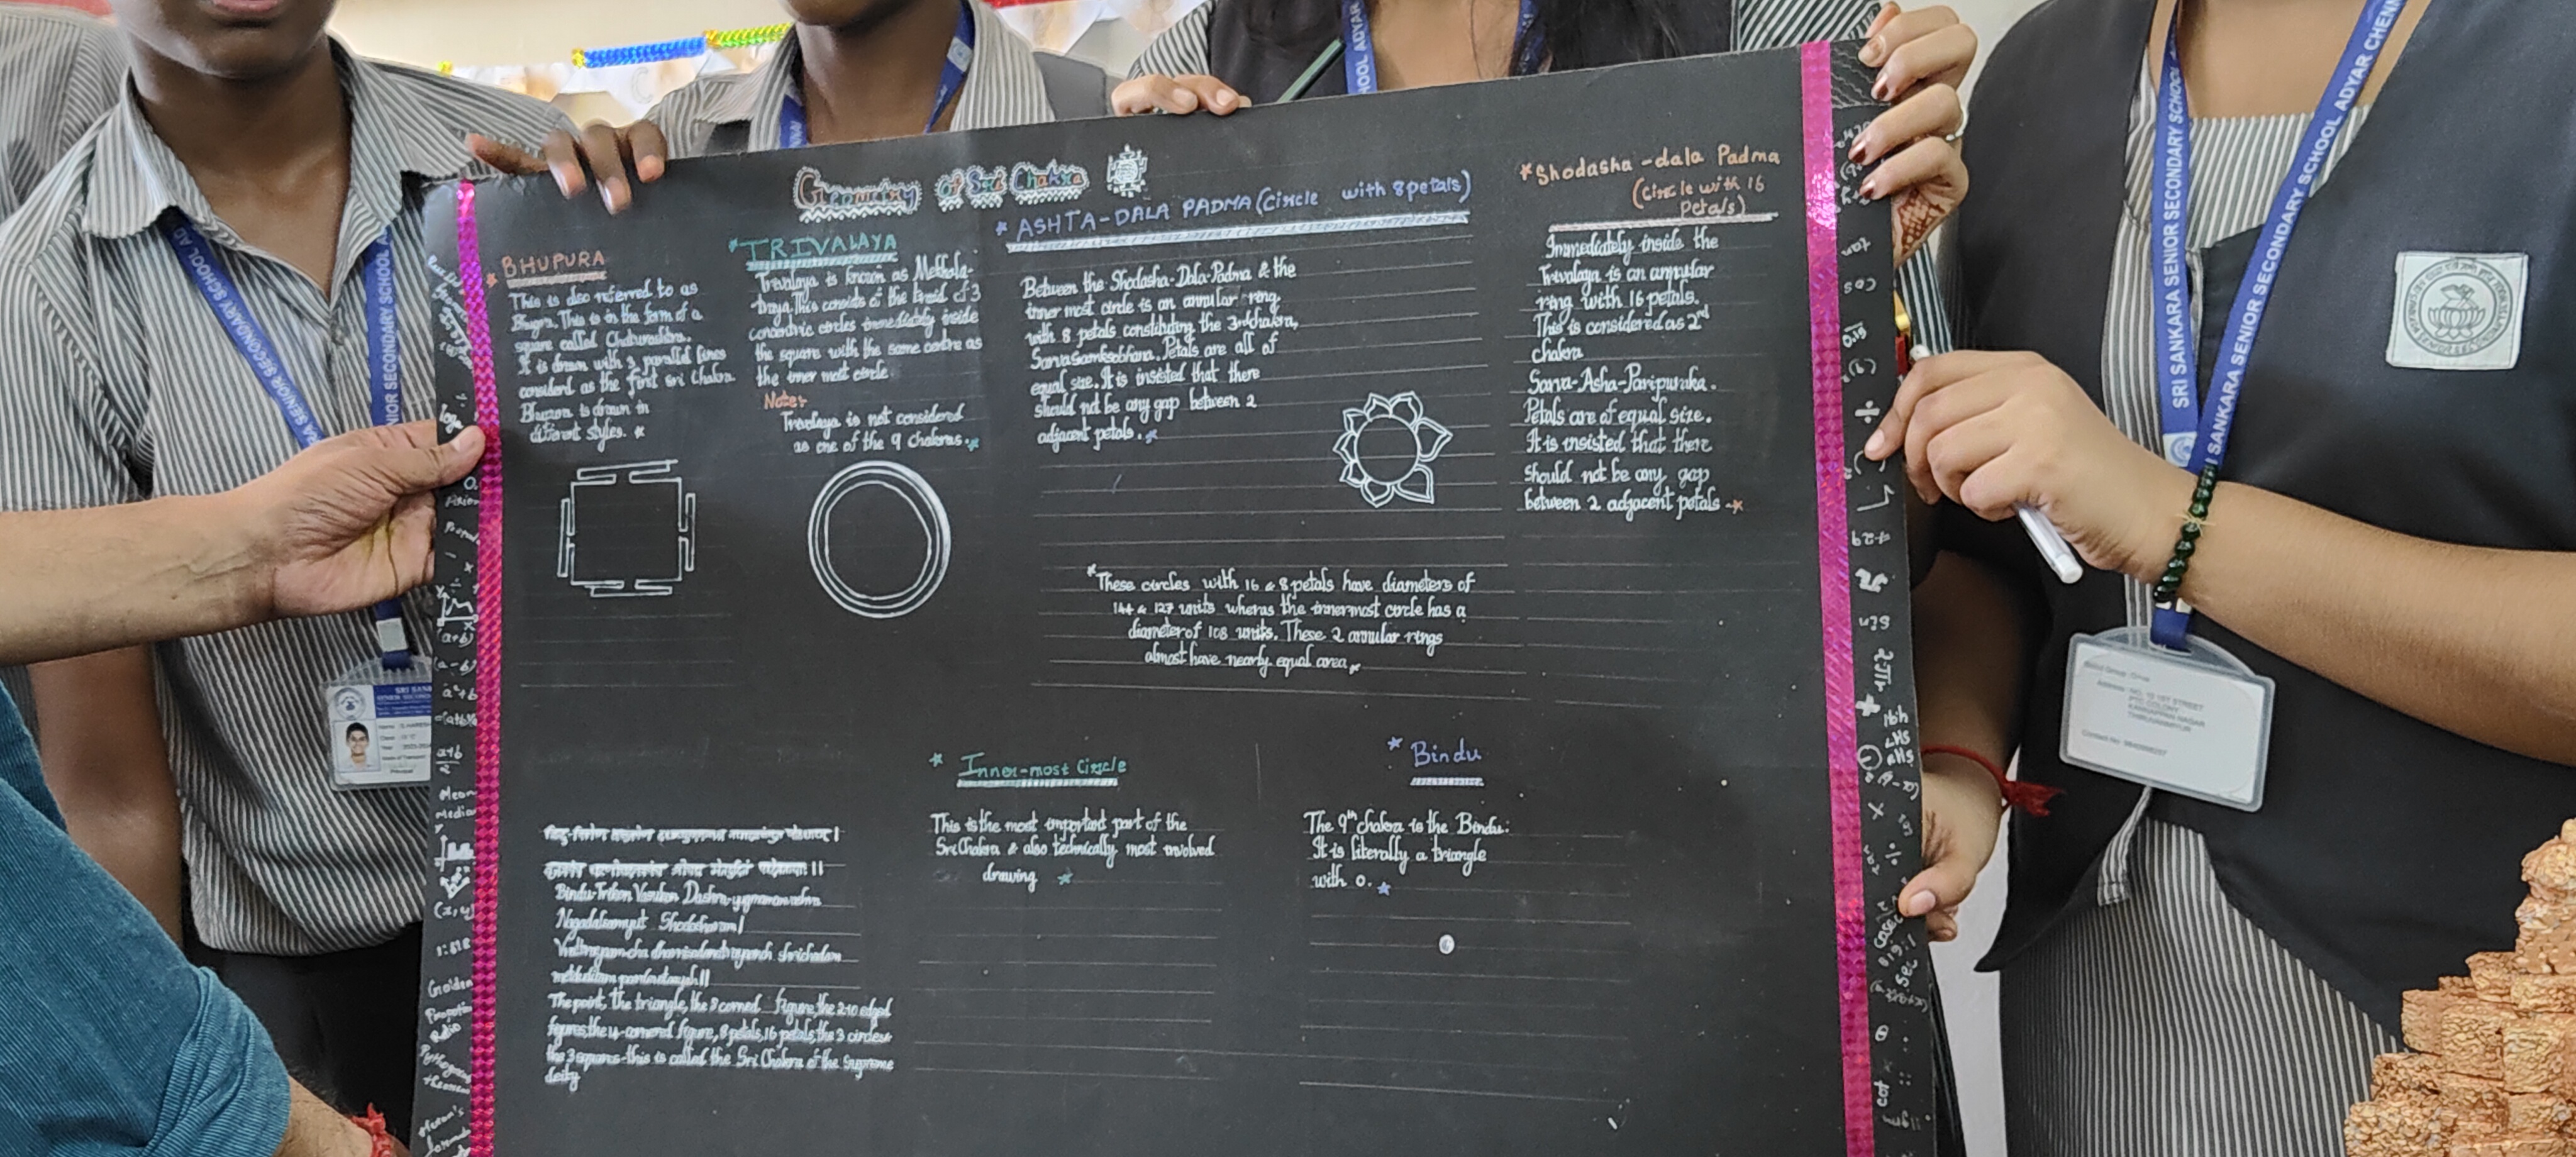 Geometry of Sri Chakra
*BHUPURA
This is also referred to as
Bhugra. This is in the form of a
square called Chaturashra.
It is drawn with 3 parallel lines
considerd as the first sri Chakra.
Bhupura is drawn in
different styles. *
*TRIVALAYA
Trivalaya is known as Mekhala-
traya. This consists of the triad of 3
concentric circles immediately inside
the square with the same centre as
the inner most circle.
Note:-
Trivalaya is not considered
as one of the 9 chakras.*
*ASHTA-DALA PADMA (Circle with 8 petals)
Between the Shodasha-Dala-Padma & the
inner most circle is an annular ring
with 8 petals constituting the 3rd chakra,
Sarvasamksobhana. Petals are all of
equal size. It is insisted that there
should not be any gap between 2
adjacent petals. *
*Shodasha-dala Padma
(Circle with 16
Petals)
Immediately inside the
Trivalaya is an annular
ring with 16 petals.
This is considered as 2nd
chakra
Sarva-Asha-Paripuraka.
Petals are of equal size.
It is insisted that there
should not be any gap
between 2 adjacent petals *
*These circles with 16 & 8 petals have diameters of
144 & 127 units wheras the innermost circle has a
diameter of 108 units. These 2 annular rings
almost have nearly equal area *
Bindu-Trikon Vasukon Dashra-
Nagadalsamyut Shodasharam|
The point, the triangle, the 8 corned figure, the 2 10 edged
figures, the 14-cornered figure, 8 petals, 16 petals, the 3 circles
the 3 squares-this is called the Sri Chakra of the Supreme
deity
* Inner-most Circle
This is the most important part of the
Sri Chakra & also technically most involved
drawing *
* Bindu
The 9th chakra is the Bindu:
It is literally a triangle
with 0. *
log
(a+b)
(a-b)
a+b
2
Mean
Median
(x,y)
1:618
Golden
Proportion
Ratio
tan
cos
÷
sin
2πr
lbh
LHS
RHS
cosec
sec
cot
SRI SANKARA SENIOR SECONDARY SCHOOL
SANKARA SENIOR SECONDARY SCHOOL ADYAR CHENN
SENIOR SECONDARY SCHOOL AD
NIOR SECONDARY SCHOOL A
HOOL ADYAR
SRI SANK